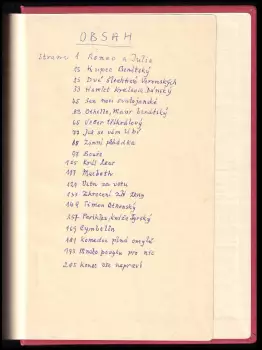 OBSAH
Strana 1 Romeo a Julie
15 Kupec Benátský
25 Dva šlechtici Veronských
33 Hamlet Kralevic Dánský
45 Sen noci svatojanské
53 Othello, Mour benátský
65 Večer tříkrálový
77 Jak se vám líbí
88 Zimní pohádka
97 Bouře
105 Král Lear
117 Macbeth
129 Veta za vetu
137 Zkrocení zlé ženy
149 Timon Athenský
157 Perikles, kníže Tyrský
169 Cymbelin
181 Komedie plná omylů
193 Mnoho povyku pro nic
205 Konec vše napraví